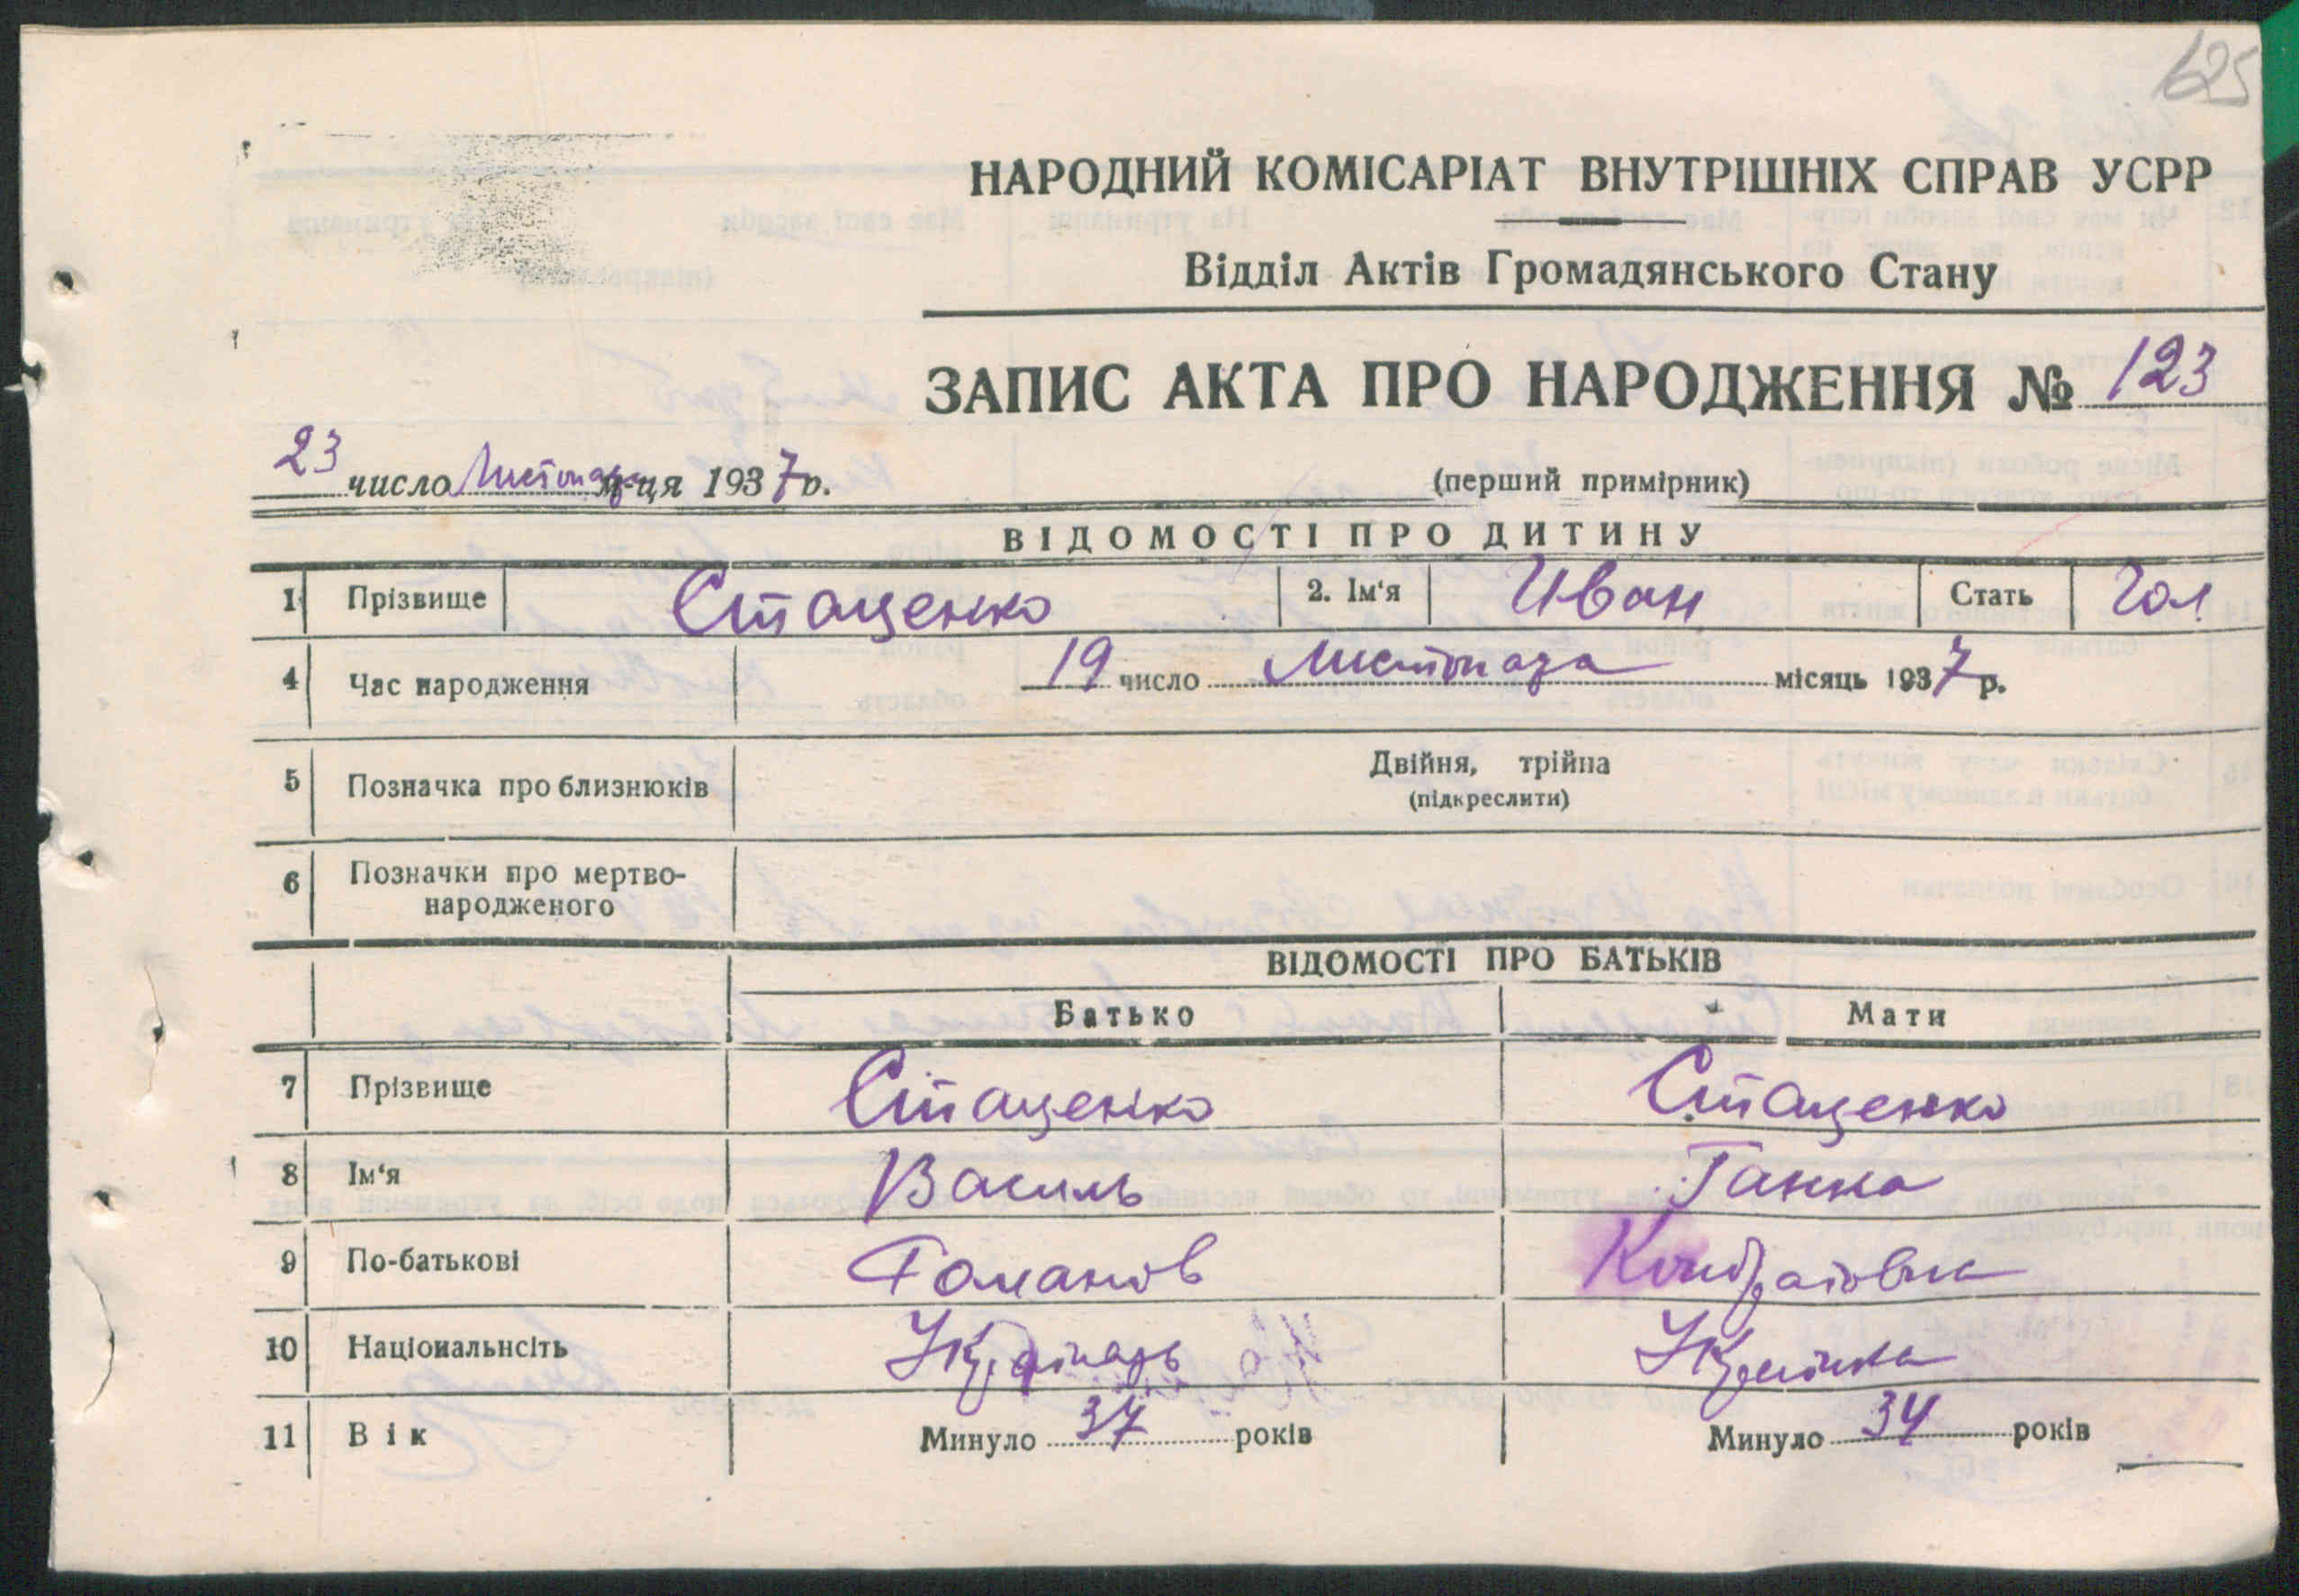 625
НАРОДНИЙ КОМІСАРІАТ ВНУТРІШНІХ СПРАВ УСРР
Відділ Актів Громадянського Стану
ЗАПИС АКТА ПРО НАРОДЖЕННЯ № 123
23 число Листопада м-ця 1937 р.
(перший примірник)
ВІДОМОСТІ ПРО ДИТИНУ
1 Прізвище Стаценко 2. Ім'я Иван Стать Чол
4 Час народження 19 число Листопада місяць 1937 р.
5 Позначка про близнюків Двійня, трійна
(підкреслити)
6 Позначки про мертво-
народженого
ВІДОМОСТІ ПРО БАТЬКІВ
Батько Мати
7 Прізвище Стаценко Стаценко
8 Ім'я Василь Ганна
9 По-батькові Романов Кондратовна
10 Національнсіть Українець Українка
11 Вік Минуло 37 років Минуло 34 років